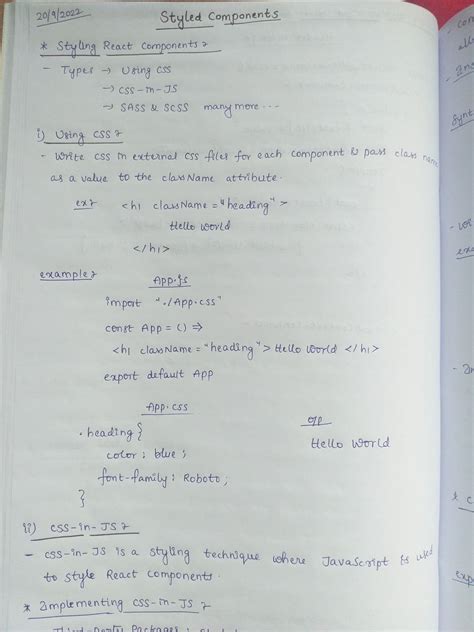 20/9/2022
Styled Components
* Styling React Components :-
- Types → Using CSS
→ CSS-in-JS
→ SASS & SCSS many more ...
i) Using CSS :-
- Write CSS in external CSS files for each component & pass class name
as a value to the className attribute.
ex :- <h1 className = "heading" >
Hello World
</h1>
example :-
App.js
import "./App.css"
const App = () ⇒
<h1 className = "heading" > Hello World </h1>
export default App
App.css
.heading {
color : blue ;
font-family : Roboto ;
}
o/p
Hello World
ii) CSS-in-JS :-
- CSS-in-JS is a styling technique where JavaScript is used
to style React components.
* Implementing CSS-in-JS :-
Third-Party Packages :
Synt